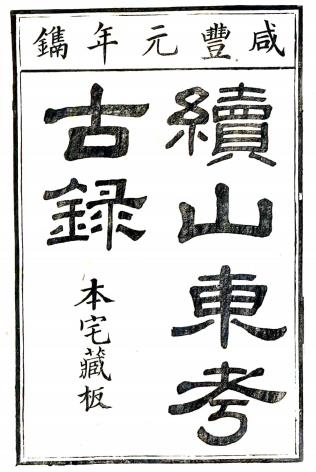 咸豐元年鐫
續山東考
古録
本宅藏板